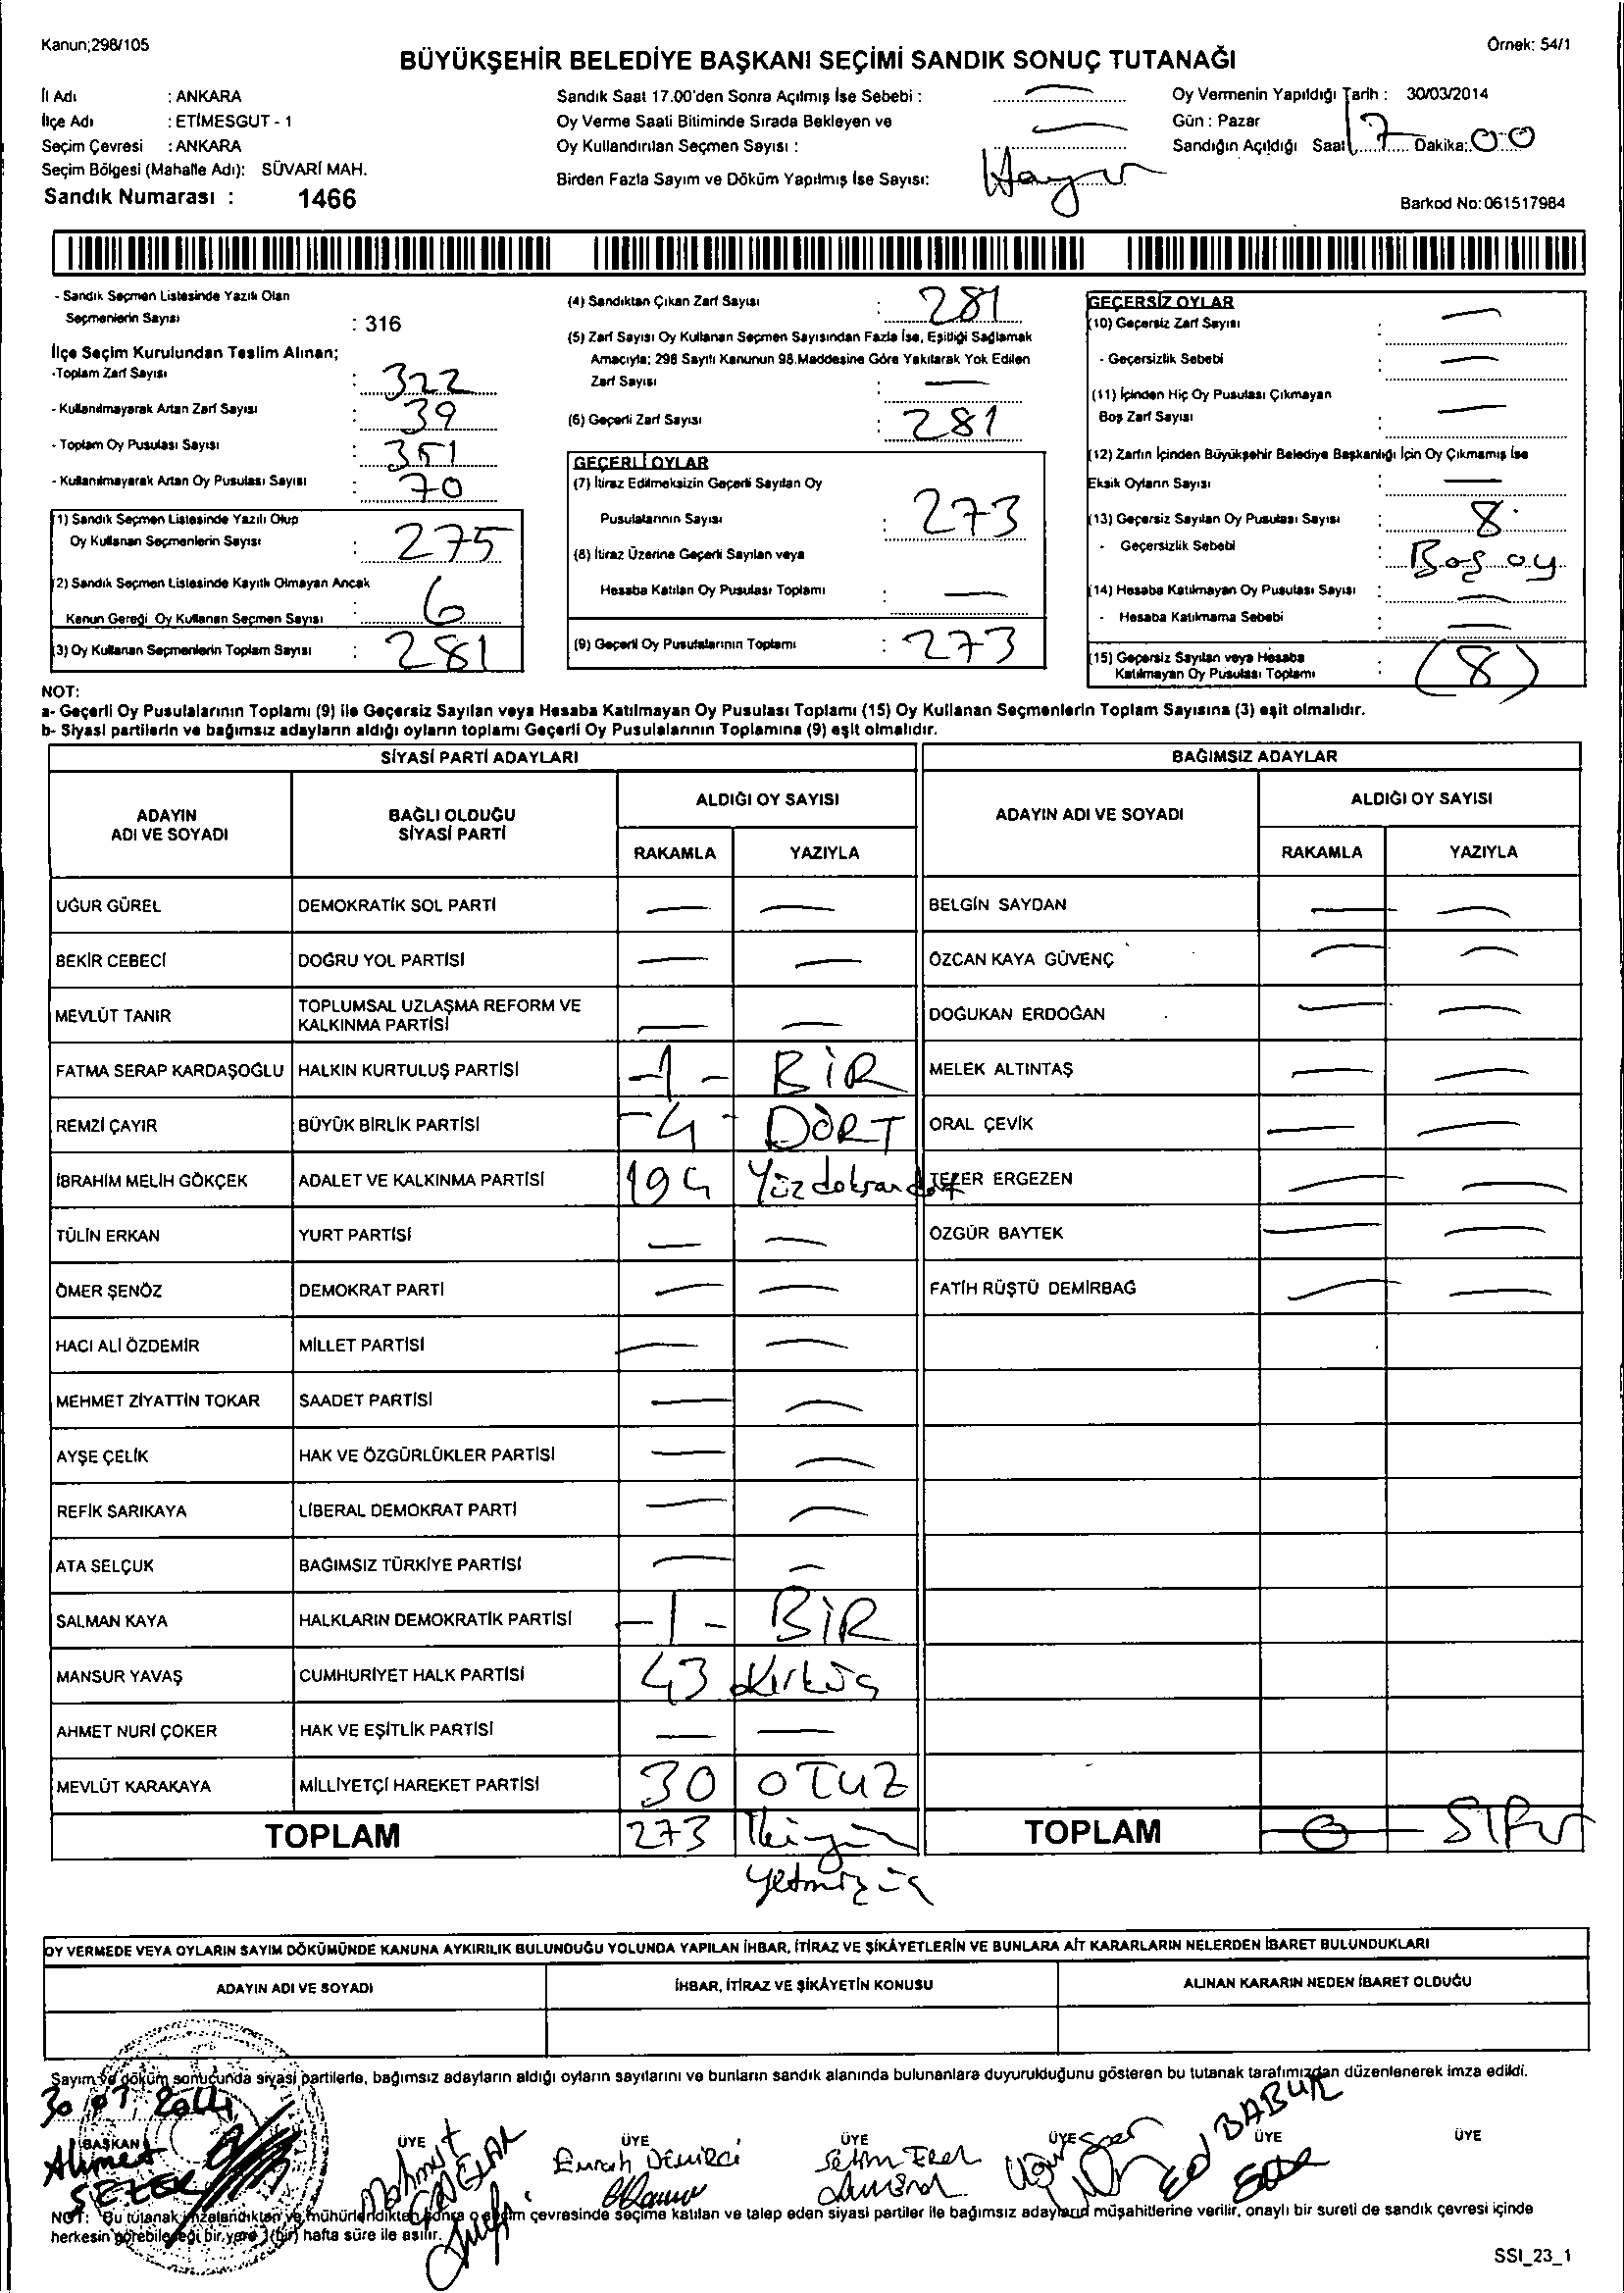 Kanun;298/105
Örnek: 54/1
BÜYÜKŞEHİR BELEDİYE BAŞKANI SEÇİMİ SANDIK SONUÇ TUTANAĞI
İl Adı : ANKARA
İlçe Adı : ETİMESGUT - 1
Seçim Çevresi : ANKARA
Seçim Bölgesi (Mahalle Adı): SÜVARİ MAH.
Sandık Numarası : 1466
Sandık Saat 17.00'den Sonra Açılmış İse Sebebi : —
Oy Verme Saati Bitiminde Sırada Bekleyen ve
Oy Kullandırılan Seçmen Sayısı : —
Birden Fazla Sayım ve Döküm Yapılmış İse Sayısı: Hayır
Oy Vermenin Yapıldığı Tarih : 30/03/2014
Gün : Pazar
Sandığın Açıldığı Saat 17 Dakika: 00
Barkod No: 061517984
- Sandık Seçmen Listesinde Yazılı Olan
Seçmenlerin Sayısı : 316
İlçe Seçim Kurulundan Teslim Alınan;
-Toplam Zarf Sayısı : 322
- Kullanılmayarak Artan Zarf Sayısı : 39
- Toplam Oy Pusulası Sayısı : 351
- Kullanılmayarak Artan Oy Pusulası Sayısı : 70
(1) Sandık Seçmen Listesinde Yazılı Olup
Oy Kullanan Seçmenlerin Sayısı : 275
(2) Sandık Seçmen Listesinde Kayıtlı Olmayan Ancak
Kanun Gereği Oy Kullanan Seçmen Sayısı : 6
(3) Oy Kullanan Seçmenlerin Toplam Sayısı : 281
(4) Sandıktan Çıkan Zarf Sayısı : 281
(5) Zarf Sayısı Oy Kullanan Seçmen Sayısından Fazla İse, Eşitliği Sağlamak
Amacıyla; 298 Sayılı Kanunun 98.Maddesine Göre Yakılarak Yok Edilen
Zarf Sayısı : —
(6) Geçerli Zarf Sayısı : 281
GEÇERLİ OYLAR
(7) İtiraz Edilmeksizin Geçerli Sayılan Oy
Pusulalarının Sayısı : 273
(8) İtiraz Üzerine Geçerli Sayılan veya
Hesaba Katılan Oy Pusulası Toplamı : —
(9) Geçerli Oy Pusulalarının Toplamı : 273
GEÇERSİZ OYLAR
(10) Geçersiz Zarf Sayısı : —
- Geçersizlik Sebebi : —
(11) İçinden Hiç Oy Pusulası Çıkmayan
Boş Zarf Sayısı : —
(12) Zarfın İçinden Büyükşehir Belediye Başkanlığı İçin Oy Çıkmamış İse
Eksik Oyların Sayısı : —
(13) Geçersiz Sayılan Oy Pusulası Sayısı : 8
- Geçersizlik Sebebi : Boş oy
(14) Hesaba Katılmayan Oy Pusulası Sayısı : —
- Hesaba Katılmama Sebebi : —
(15) Geçersiz Sayılan veya Hesaba
Katılmayan Oy Pusulası Toplamı : (8)
NOT:
a- Geçerli Oy Pusulalarının Toplamı (9) ile Geçersiz Sayılan veya Hesaba Katılmayan Oy Pusulası Toplamı (15) Oy Kullanan Seçmenlerin Toplam Sayısına (3) eşit olmalıdır.
b- Siyasi partilerin ve bağımsız adayların aldığı oyların toplamı Geçerli Oy Pusulalarının Toplamına (9) eşit olmalıdır.
SİYASİ PARTİ ADAYLARI
ADAYIN ADI VE SOYADI
BAĞLI OLDUĞU SİYASİ PARTİ
ALDIĞI OY SAYISI
RAKAMLA YAZIYLA
UĞUR GÜREL DEMOKRATİK SOL PARTİ — —
BEKİR CEBECİ DOĞRU YOL PARTİSİ — —
MEVLÜT TANIR TOPLUMSAL UZLAŞMA REFORM VE KALKINMA PARTİSİ — —
FATMA SERAP KARDAŞOĞLU HALKIN KURTULUŞ PARTİSİ -1- BİR
REMZİ ÇAYIR BÜYÜK BİRLİK PARTİSİ -4- DÖRT
İBRAHİM MELİH GÖKÇEK ADALET VE KALKINMA PARTİSİ 194 Yüzdoksandört
TÜLİN ERKAN YURT PARTİSİ — —
ÖMER ŞENÖZ DEMOKRAT PARTİ — —
HACI ALİ ÖZDEMİR MİLLET PARTİSİ — —
MEHMET ZİYATTİN TOKAR SAADET PARTİSİ — —
AYŞE ÇELİK HAK VE ÖZGÜRLÜKLER PARTİSİ — —
REFİK SARIKAYA LİBERAL DEMOKRAT PARTİ — —
ATA SELÇUK BAĞIMSIZ TÜRKİYE PARTİSİ — —
SALMAN KAYA HALKLARIN DEMOKRATİK PARTİSİ -1- BİR
MANSUR YAVAŞ CUMHURİYET HALK PARTİSİ 43 Kırküç
AHMET NURİ ÇOKER HAK VE EŞİTLİK PARTİSİ — —
MEVLÜT KARAKAYA MİLLİYETÇİ HAREKET PARTİSİ 30 OTUZ
TOPLAM 273 İkiyüz
yetmişüç
BAĞIMSIZ ADAYLAR
ADAYIN ADI VE SOYADI
ALDIĞI OY SAYISI
RAKAMLA YAZIYLA
BELGİN SAYDAN — —
ÖZCAN KAYA GÜVENÇ — —
DOĞUKAN ERDOĞAN — —
MELEK ALTINTAŞ — —
ORAL ÇEVİK — —
TEZER ERGEZEN — —
ÖZGÜR BAYTEK — —
FATİH RÜŞTÜ DEMİRBAĞ — —
TOPLAM 0 SIFIR
OY VERMEDE VEYA OYLARIN SAYIM DÖKÜMÜNDE KANUNA AYKIRILIK BULUNDUĞU YOLUNDA YAPILAN İHBAR, İTİRAZ VE ŞİKÂYETLERİN VE BUNLARA AİT KARARLARIN NELERDEN İBARET BULUNDUKLARI
ADAYIN ADI VE SOYADI
İHBAR, İTİRAZ VE ŞİKÂYETİN KONUSU
ALINAN KARARIN NEDEN İBARET OLDUĞU
Sayım ve döküm sonucunda siyasi partilerle, bağımsız adayların aldığı oyların sayılarını ve bunların sandık alanında bulunanlara duyurulduğunu gösteren bu tutanak tarafımızdan düzenlenerek imza edildi.
30 03 2014
BAŞKAN ÜYE ÜYE ÜYE ÜYE ÜYE ÜYE
Ahmet SEZER
Mahmut
Emrah Demirci
Selim
BABUR
NOT: Bu tutanak imzalandıktan ve mühürlendikten sonra o seçim çevresinde seçime katılan ve talep eden siyasi partiler ile bağımsız adayların müşahitlerine verilir, onaylı bir sureti de sandık çevresi içinde
herkesin görebileceği bir yere 1(bir) hafta süre ile asılır.
SSI_23_1